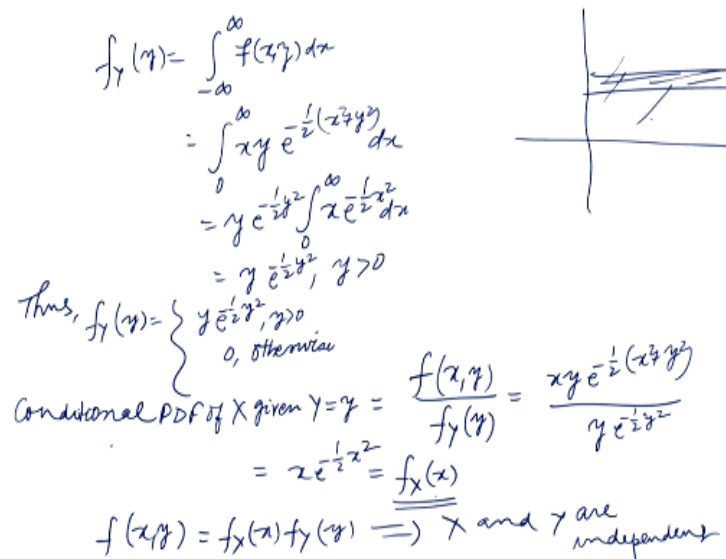 f_Y(y) = ∫_{-∞}^{∞} f(x,y) dx
= ∫_0^∞ xy e^{-1/2(x²+y²)} dx
= y e^{-1/2 y²} ∫_0^∞ x e^{-1/2 x²} dx
= y e^{-1/2 y²}, y>0
Thus, f_Y(y) = { y e^{-1/2 y²}, y>0
0, otherwise
Conditional PDF of X given Y=y = f(x,y)/f_Y(y) = xy e^{-1/2(x²+y²)}/y e^{-1/2 y²}
= x e^{-1/2 x²} = f_X(x)
f(x,y) = f_X(x) f_Y(y) => X and Y are independent